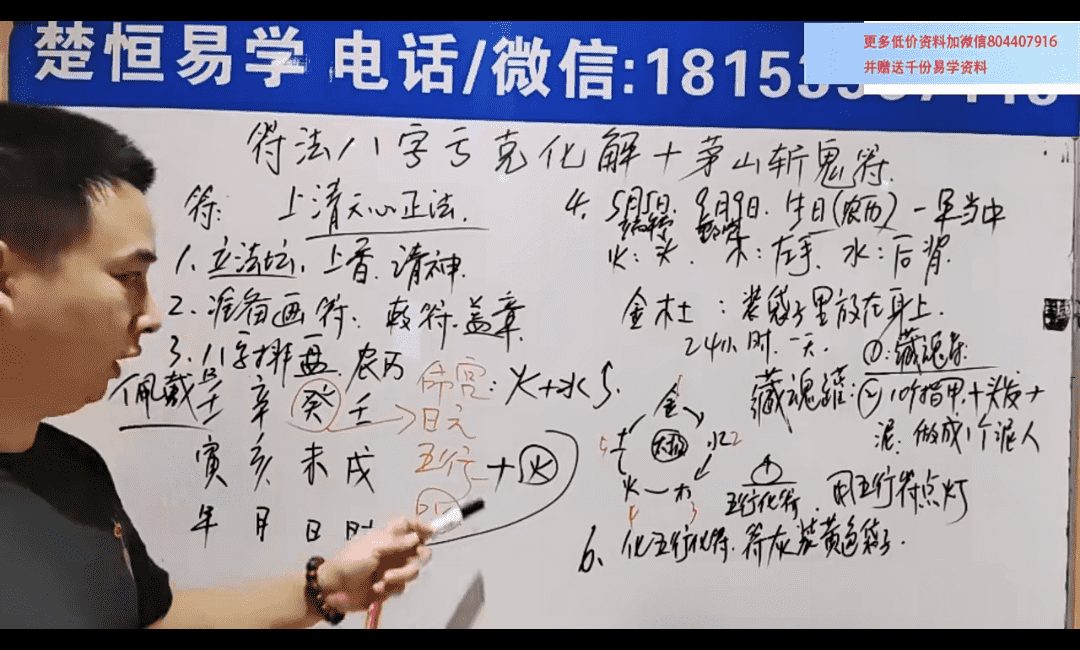 楚恒易学 电话/微信:1815
更多低价资料加微信804407916
并赠送千份易学资料
符法八字亏克化解+茅山斩鬼符.
符: 上清天心正法.
1.立法坛,上香.请神.
2.准备画符. 敕符.盖章.
3.八字排盘.农历
佩戴
壬 辛 癸 壬
寅 亥 未 戌
年 月 日 时
命宫:火+水5.
日元
五行+火
4. 5月5日. 9月9日. 生日(农历) 一年当中
端午 重阳
火:头. 木:左手. 水:后背.
金木土:装袋子里放在身上.
24小时.一天. ①:藏魂
藏魂罐:② 10个指甲+头发+
泥:做成1个泥人
金
土 水2
火一木
4 3
五行化符. 用五行符点灯
6、化五行化符.符灰装黄色袋子.